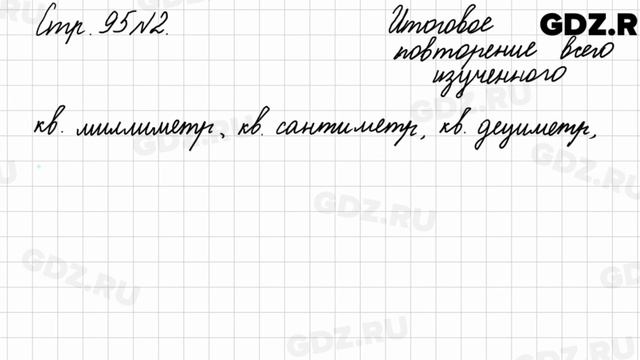 Стр. 95 №2.
Итоговое
повторение всего
изученного
GDZ.R
кв. миллиметр, кв. сантиметр, кв. дециметр,
GDZ.RU
GDZ.RU
GDZ.RU
GDZ.RU
GDZ.RU
GDZ.RU